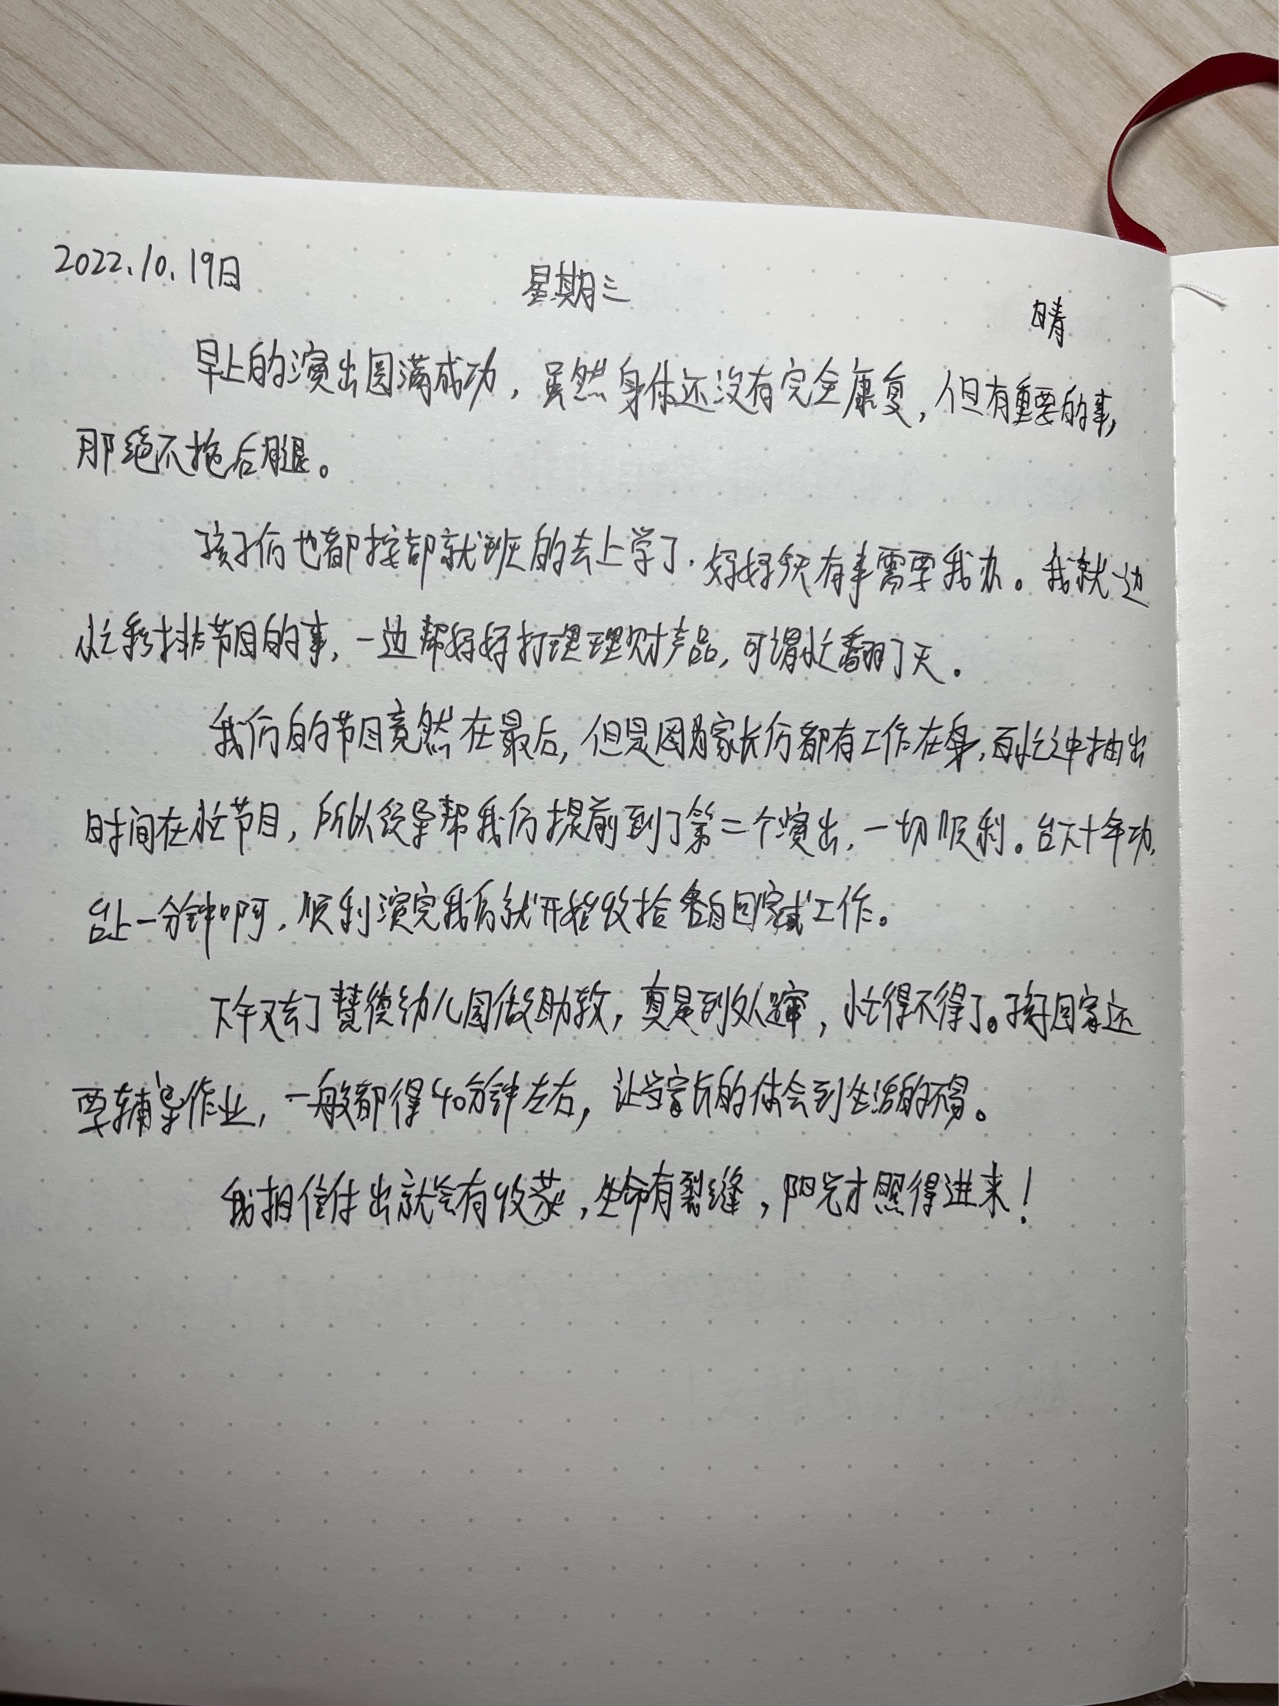 2022.10.19日 星期三 晴
早上的演出圆满成功，虽然身体还没有完全康复，但有重要的事，
那绝不拖后腿。
孩子们也都按部就班的去上学了，好好今天有事需要我办。我就一边
忙彩排节目的事，一边帮好好打理理财产品，可谓忙翻了天。
我们的节目竟然在最后，但是因为家长们都有工作在身，百忙之中抽出
时间在忙节目，所以领导帮我们提前到了第二个演出，一切顺利。台下十年功，
台上一分钟啊，顺利演完我们就开始收拾各自回家或工作。
下午又去了慧德幼儿园做助教，真是到处蹿，忙得不得了。孩子回家还
要辅导作业，一般都得40分钟左右，让当家长的体会到生活的不易。
我相信付出就会有收获，生命有裂缝，阳光才照得进来！